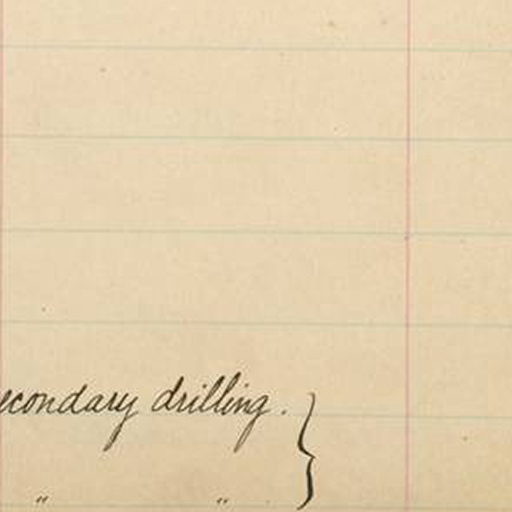 econdary drilling. }
" "